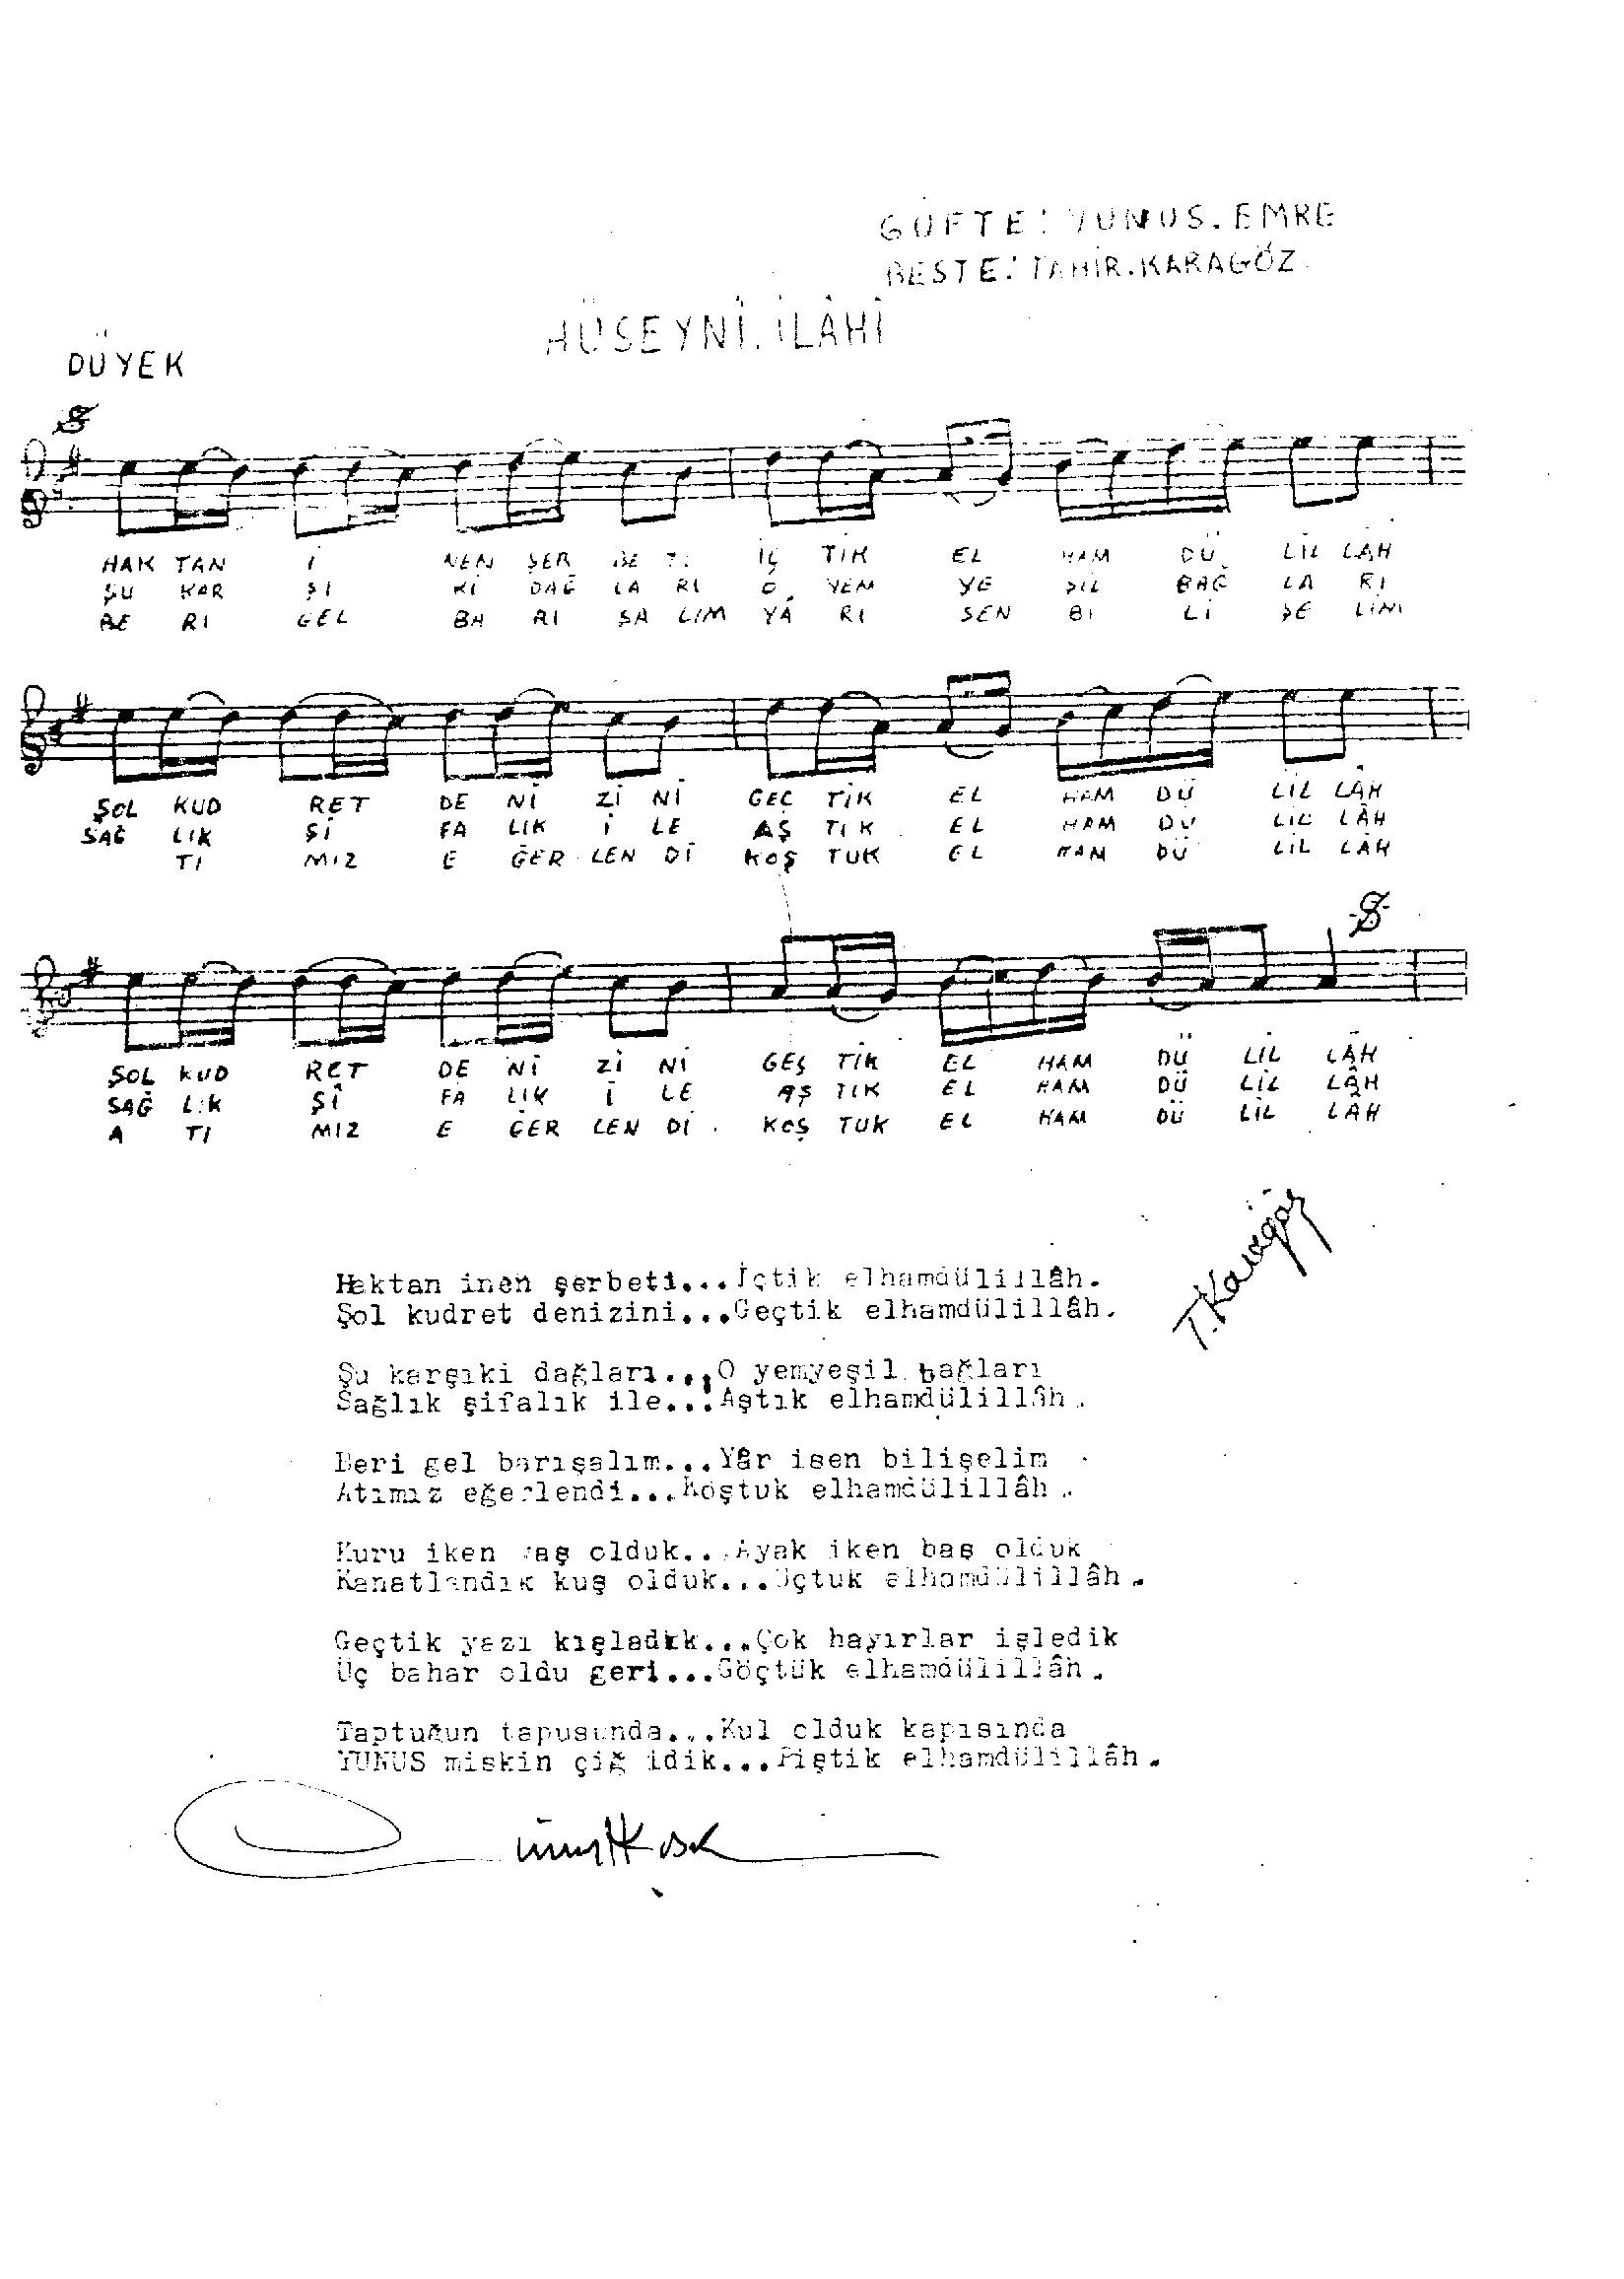 GÜFTE: YUNUS.EMRE
BESTE: TAHİR.KARAGÖZ
HÜSEYNİ.İLÂHİ
DÜYEK
HAK TAN İ NEN ŞER BE Tİ İÇ TİK EL HAM DÜ LİL LÂH
ŞU KAR ŞI Kİ DAĞ LA RI O YEM YE ŞİL BAĞ LA RI
BE RI GEL BA RI ŞA LIM YÂ RI SEN BI Lİ ŞE LİM
ŞOL KUD RET DE Nİ Zİ Nİ GEÇ TİK EL HAM DÜ LİL LÂH
SAĞ LIK Şİ FA LIK İ LE AŞ TIK EL HAM DÜ LİL LÂH
TI MIZ E ĞER LEN Dİ KOŞ TUK EL HAM DÜ LİL LÂH
ŞOL KUD RET DE Nİ Zİ Nİ GEÇ TİK EL HAM DÜ LİL LÂH
SAĞ LIK Şİ FA LIK İ LE AŞ TIK EL HAM DÜ LİL LÂH
A TI MIZ E ĞER LEN Dİ. KOŞ TUK EL HAM DÜ LİL LÂH
T.Karagöz
Haktan inen şerbeti...İçtik elhamdülillâh.
Şol kudret denizini...Geçtik elhamdülillâh.
Şu karşıki dağları...O yemyeşil bağları
Sağlık şifalık ile...Aştık elhamdülillâh.
Beri gel barışalım...Yâr isen bilişelim
Atımız eğerlendi...Koştuk elhamdülillâh.
Kuru iken yaş olduk...Ayak iken baş olduk
Kanatlandık kuş olduk...Uçtuk elhamdülillâh.
Geçtik yazı kışladık...Çok hayırlar işledik
Üç bahar oldu geri...Göçtük elhamdülillâh.
Taptuğun tapusunda...Kul olduk kapısında
YUNUS miskin çiğ idik...Piştik elhamdülillâh.